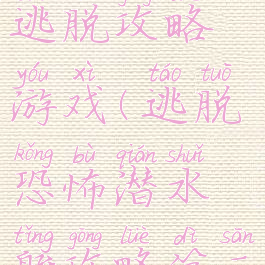 逃脱攻略
yóu xì táo tuō
游戏(逃脱
kǒng bù qián shuǐ
恐怖潜水
tǐng gōng lüè dì sān
艇攻略第三